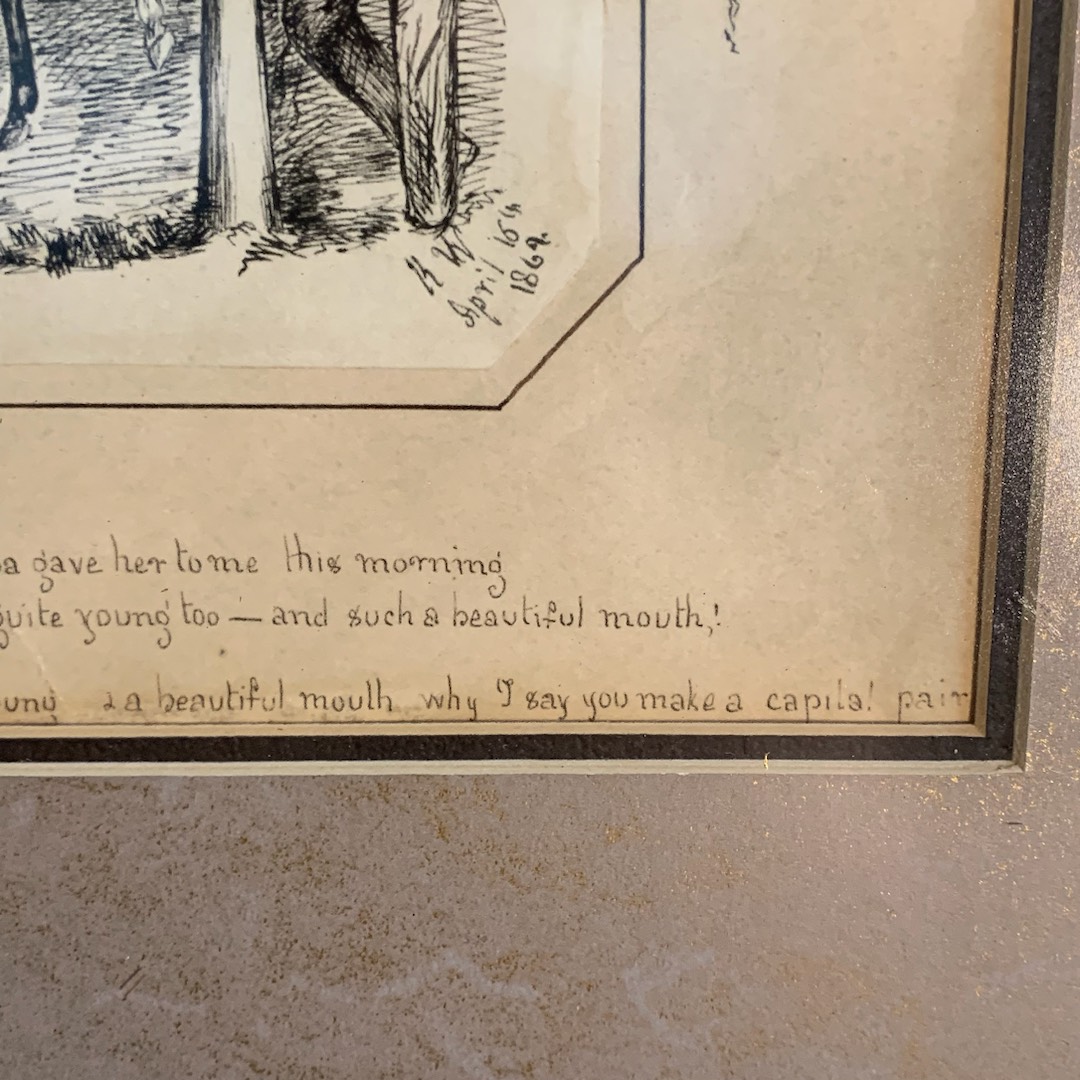 April 16th
1869.
a gave her to me this morning
quite young too — and such a beautiful mouth,!
& a beautiful mouth why I say you make a capital pair